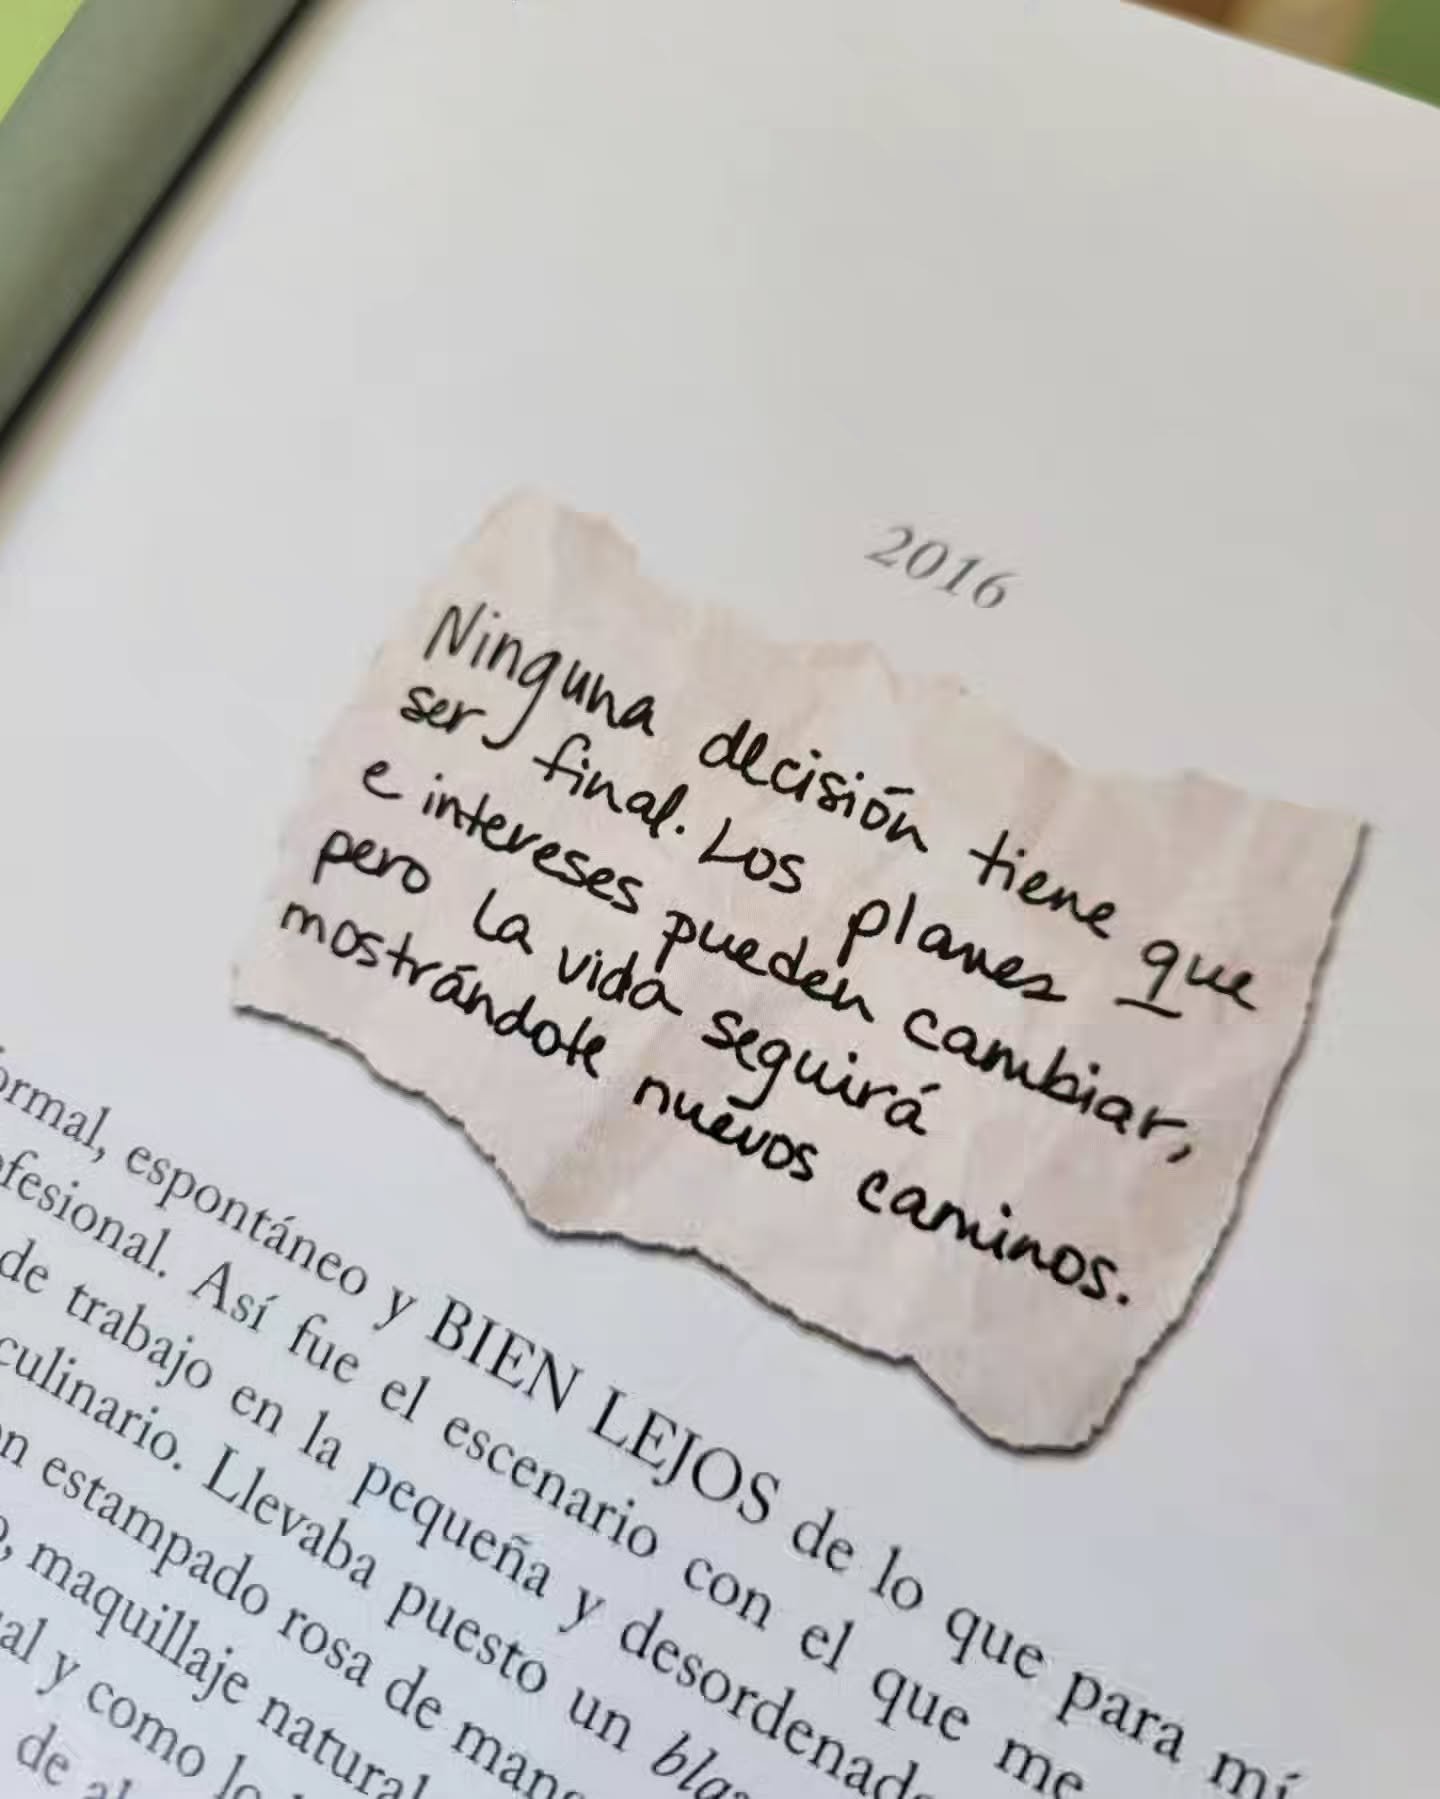 2016
Ninguna decisión tiene que
ser final. Los planes
e intereses pueden cambiar,
pero la vida seguirá
mostrándote nuevos caminos.
espontáneo y BIEN LEJOS de lo que para mí
Así fue el escenario con el que me
de trabajo en la pequeña y
Llevaba puesto un
estampado rosa de
maquillaje natural
y como lo
de